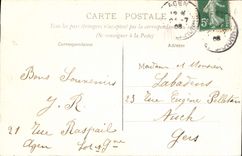 CARTE POSTALE
Tous les pays étrangers n'acceptent pas la Correspondance au recto
(Se renseigner à la Poste)
Correspondance
AGEN
5c
Bons Souvenirs
J. R
21 Rue Raspail
Agen Lot & Gne
Madame et Monsieur
Labadens
23 Rue Eugène Pelletan
Auch
Gers